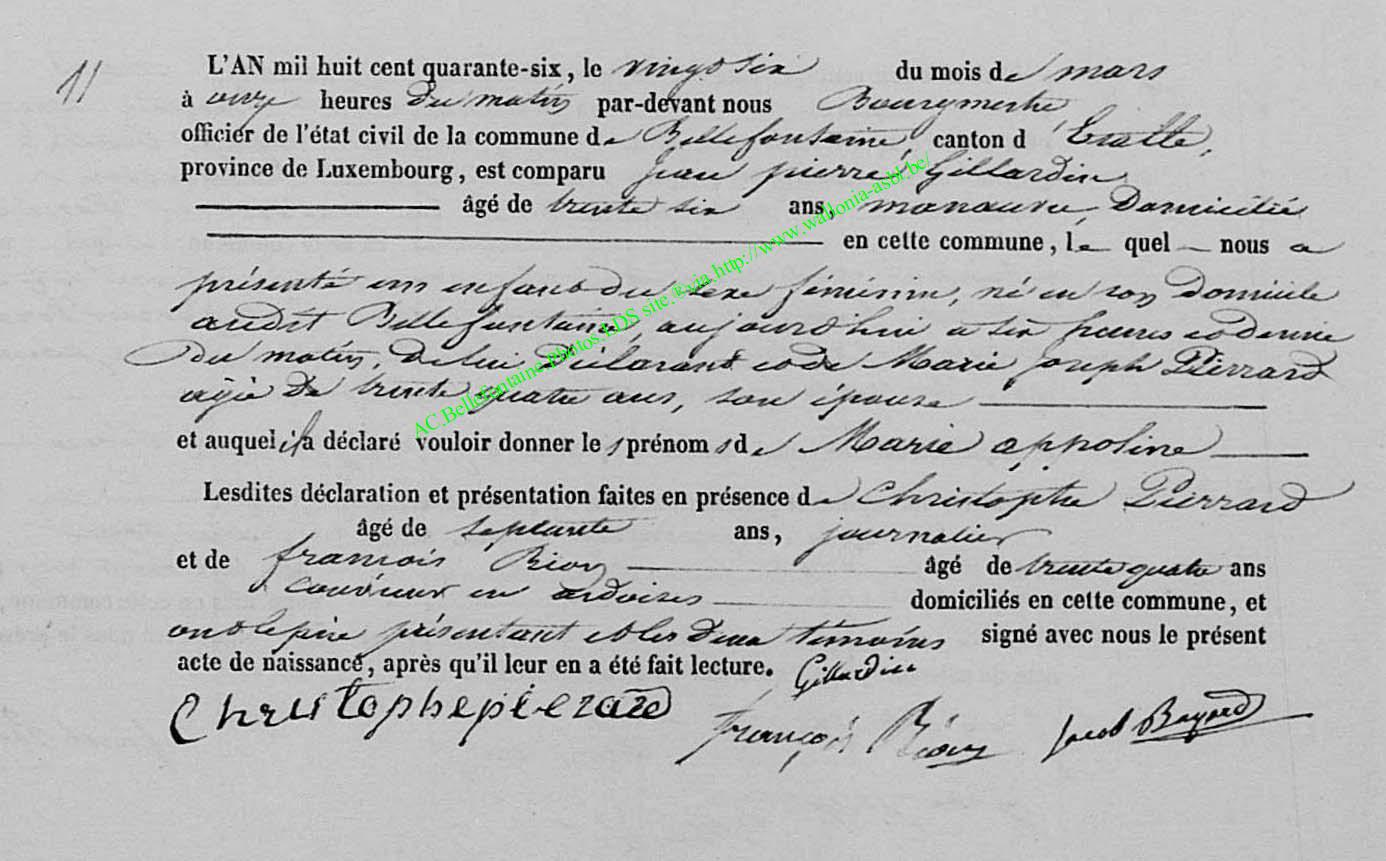 11
L'AN mil huit cent quarante-six, le vingt six du mois de mars
à onze heures du matin par-devant nous Bourgmestre
officier de l'état civil de la commune de Bellefontaine, canton d'Etalle,
province de Luxembourg, est comparu Jean pierre Gillardin
âgé de trente six ans, manœuvre, Domicilié
en cette commune, le quel nous a
présenté un enfant du sexe féminin, né en son Domicile
audit Bellefontaine, aujourd'hui a six heures et demie
du matin, de lui Déclarant et de Marie joseph Pierrard
agée de trente quatre ans, son épouse
et auquel il a déclaré vouloir donner les prénoms de Marie appoline
Lesdites déclaration et présentation faites en présence de Christophe Pierrard
âgé de septante ans, journalier
et de françois Riou âgé de trente quatre ans
couvreur en ardoises domiciliés en cette commune, et
ont le père présentant et les deux témoins signé avec nous le présent
acte de naissance, après qu'il leur en a été fait lecture. Gillardin
Christophe pierard
françois Jacob Bayard
AC.Bellefontaine.Photos.LDS site.©via http://www.wallonia-asbl.be/